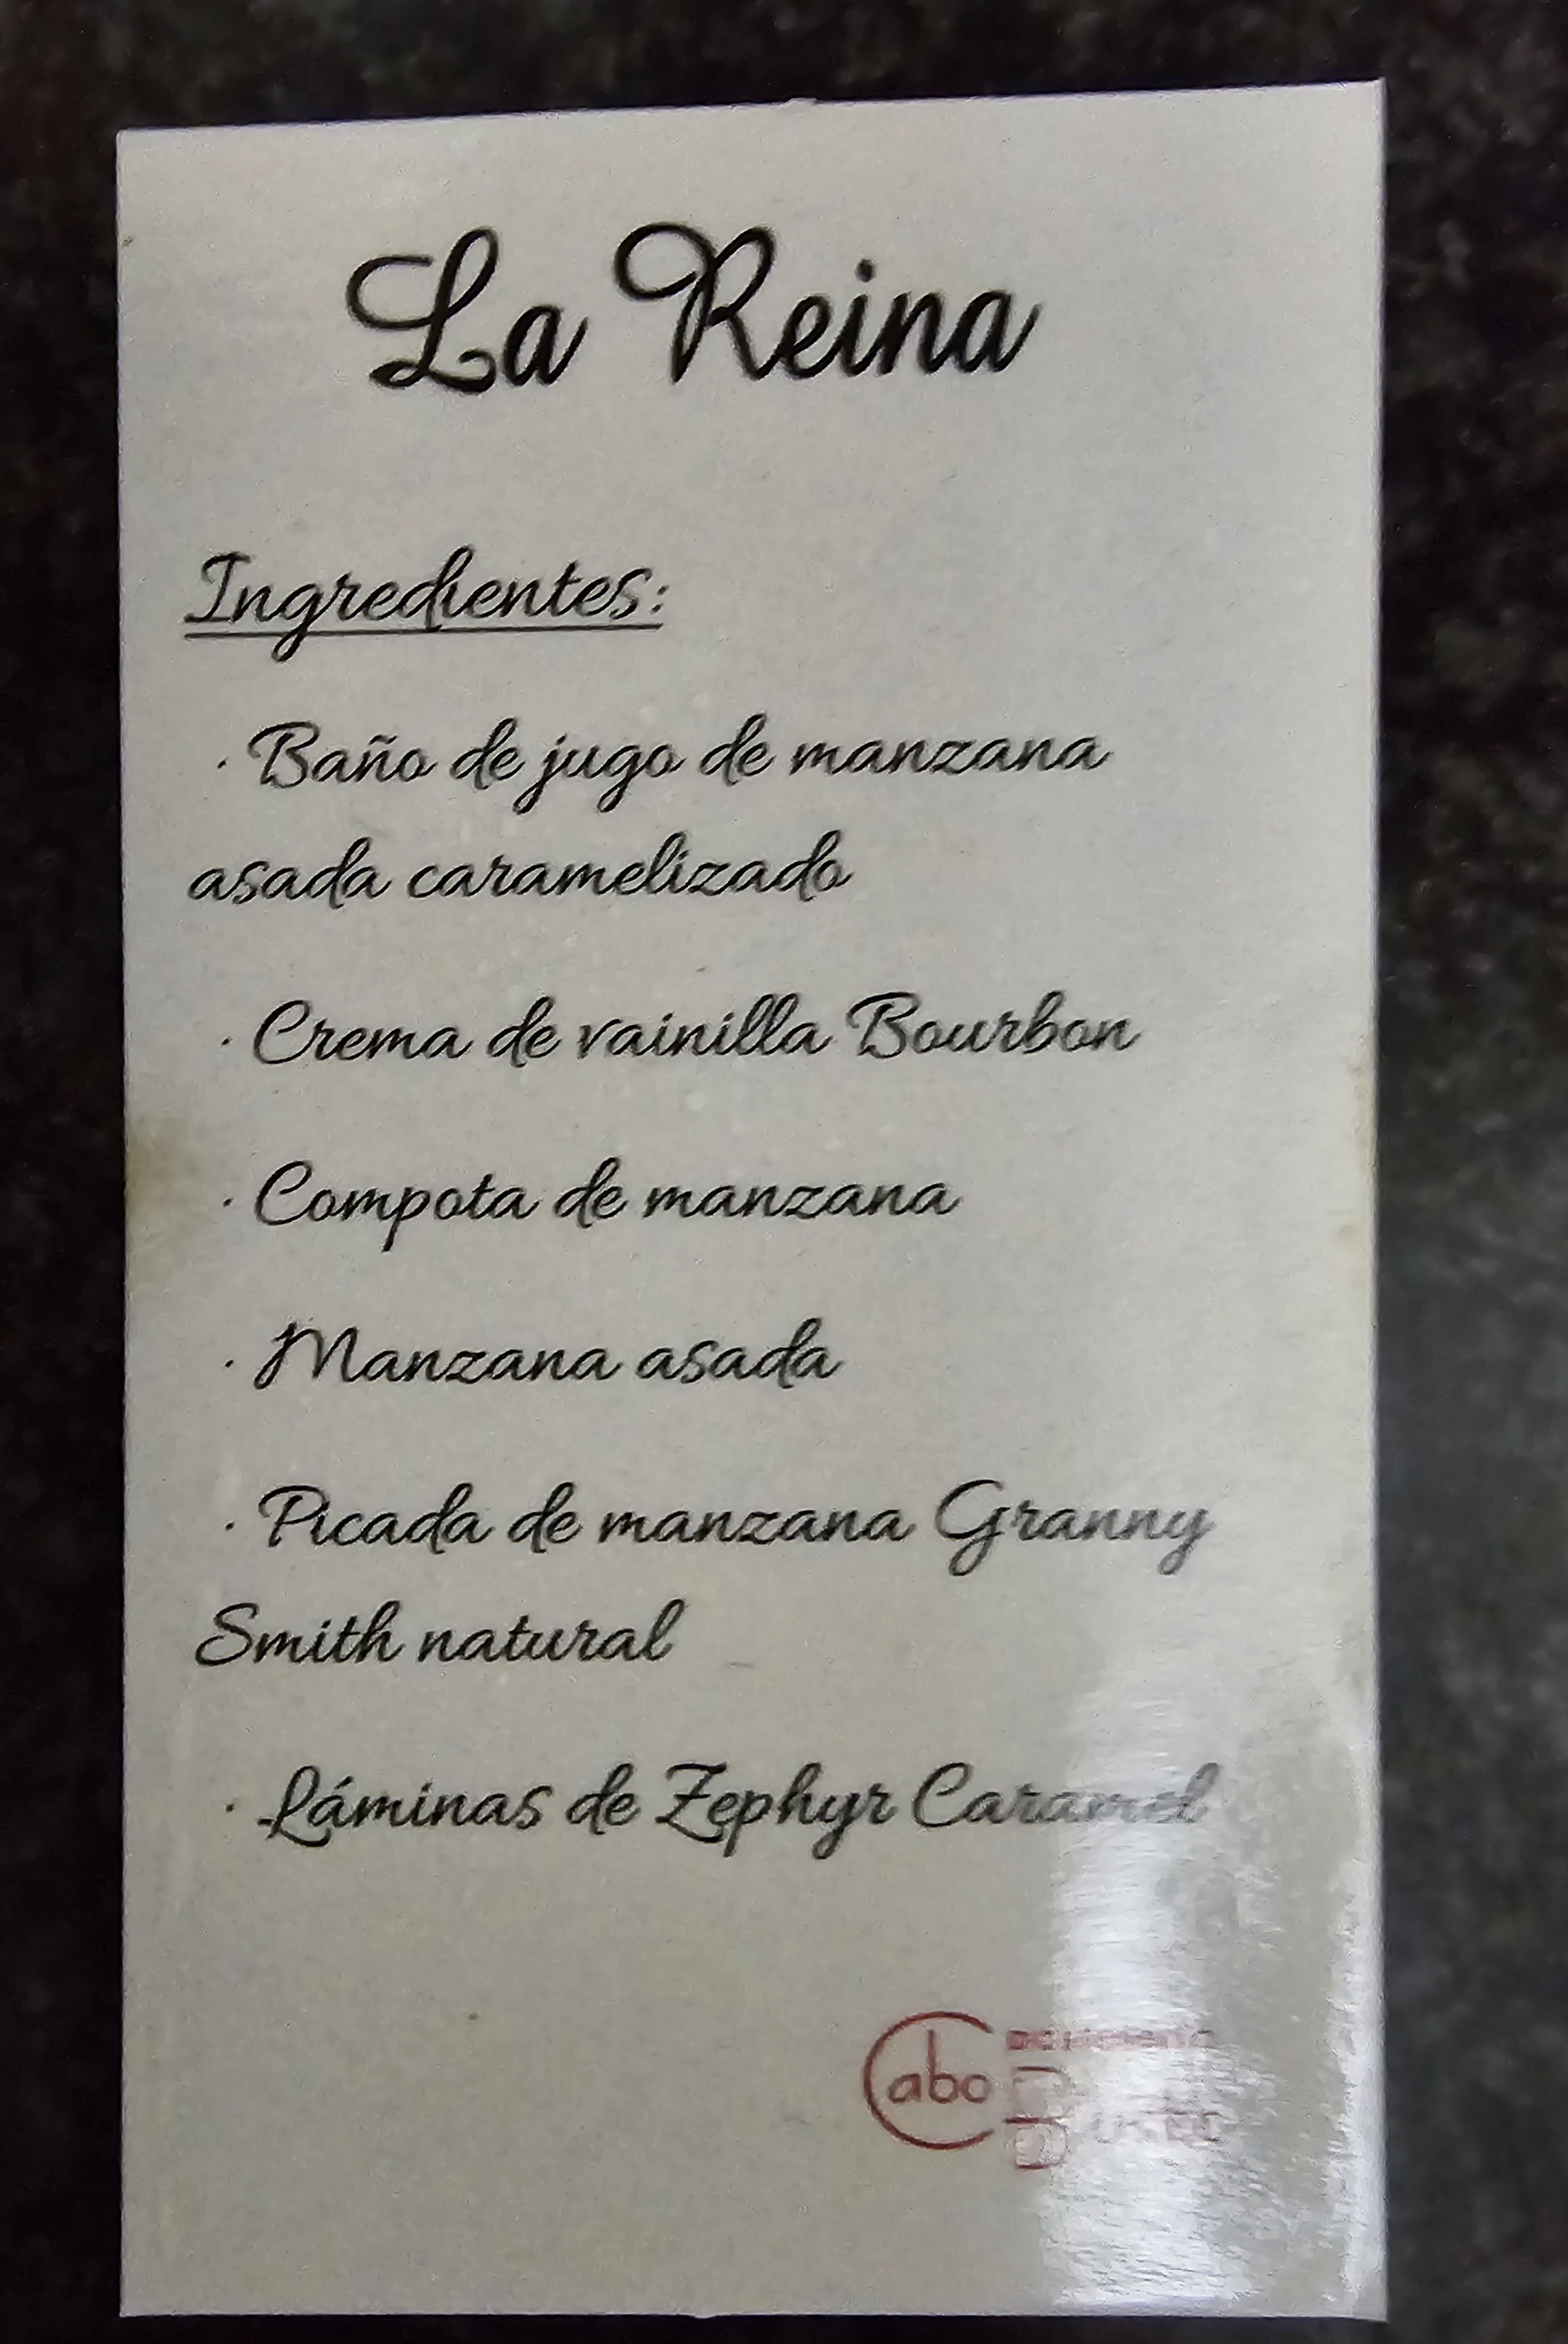 La Reina
Ingredientes:
· Baño de jugo de manzana
asada caramelizado
· Crema de vainilla Bourbon
· Compota de manzana
· Manzana asada
· Picada de manzana Granny
Smith natural
· Láminas de Zephyr Caramel
abc